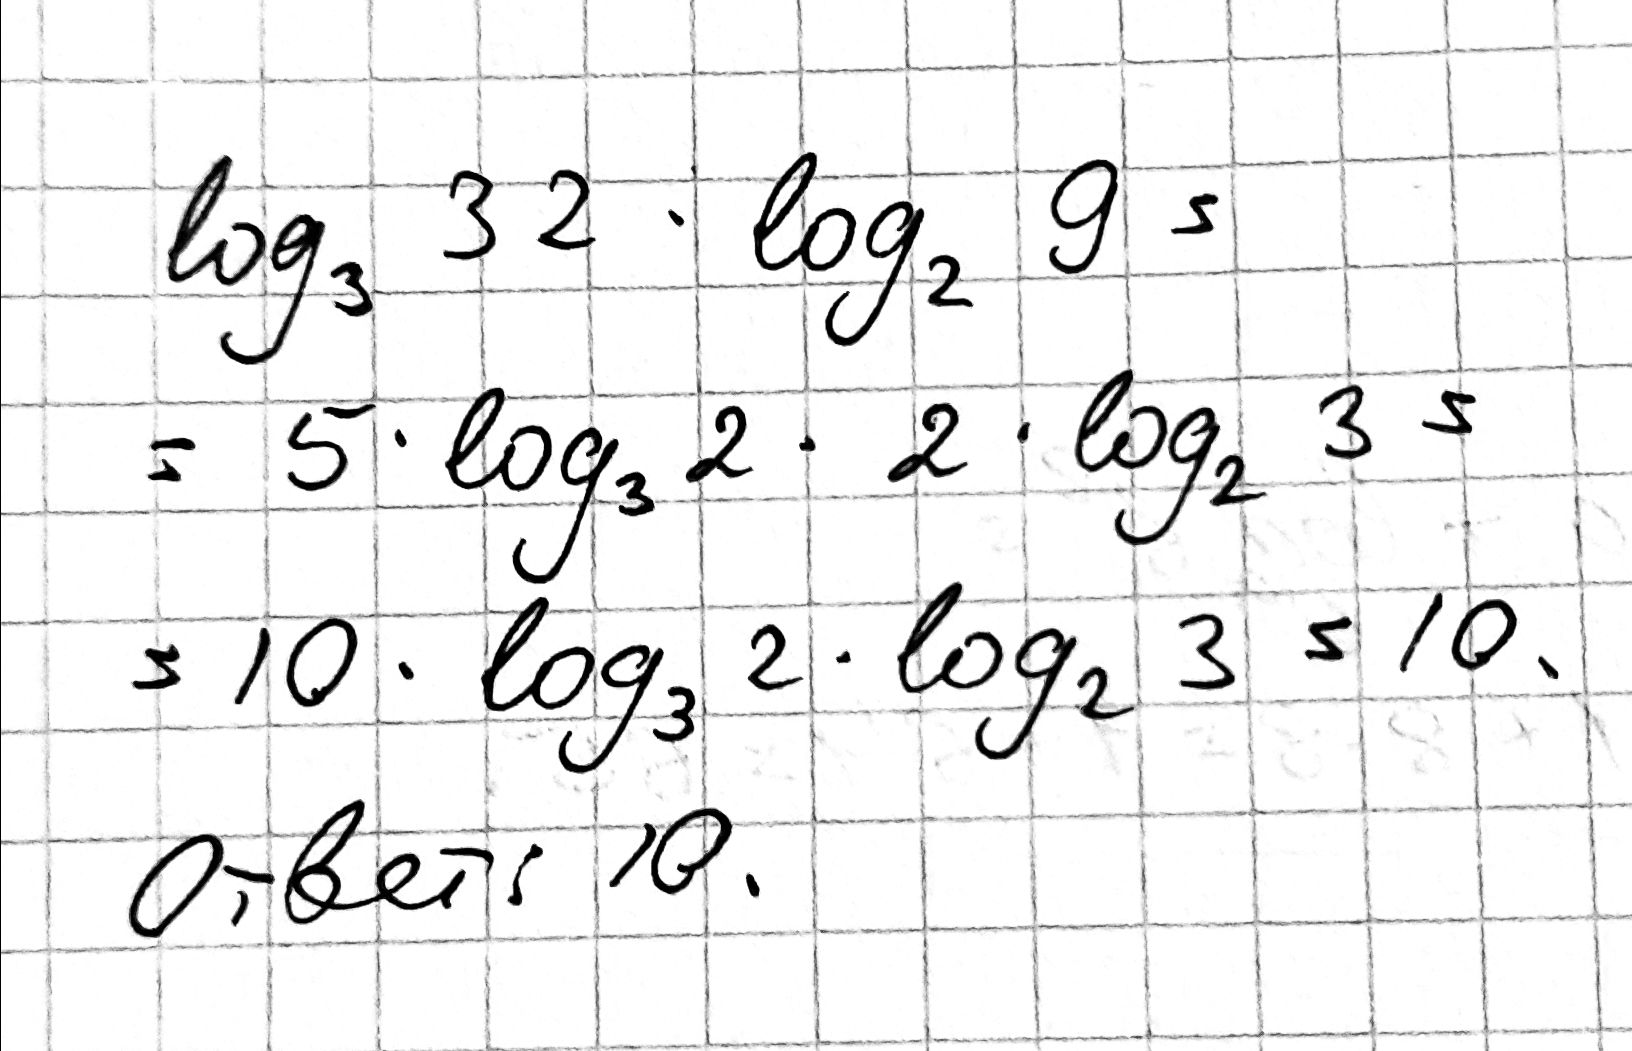 log₃ 32 · log₂ 9 =
= 5 · log₃ 2 · 2 · log₂ 3 =
= 10 · log₃ 2 · log₂ 3 = 10.
Ответ: 10.